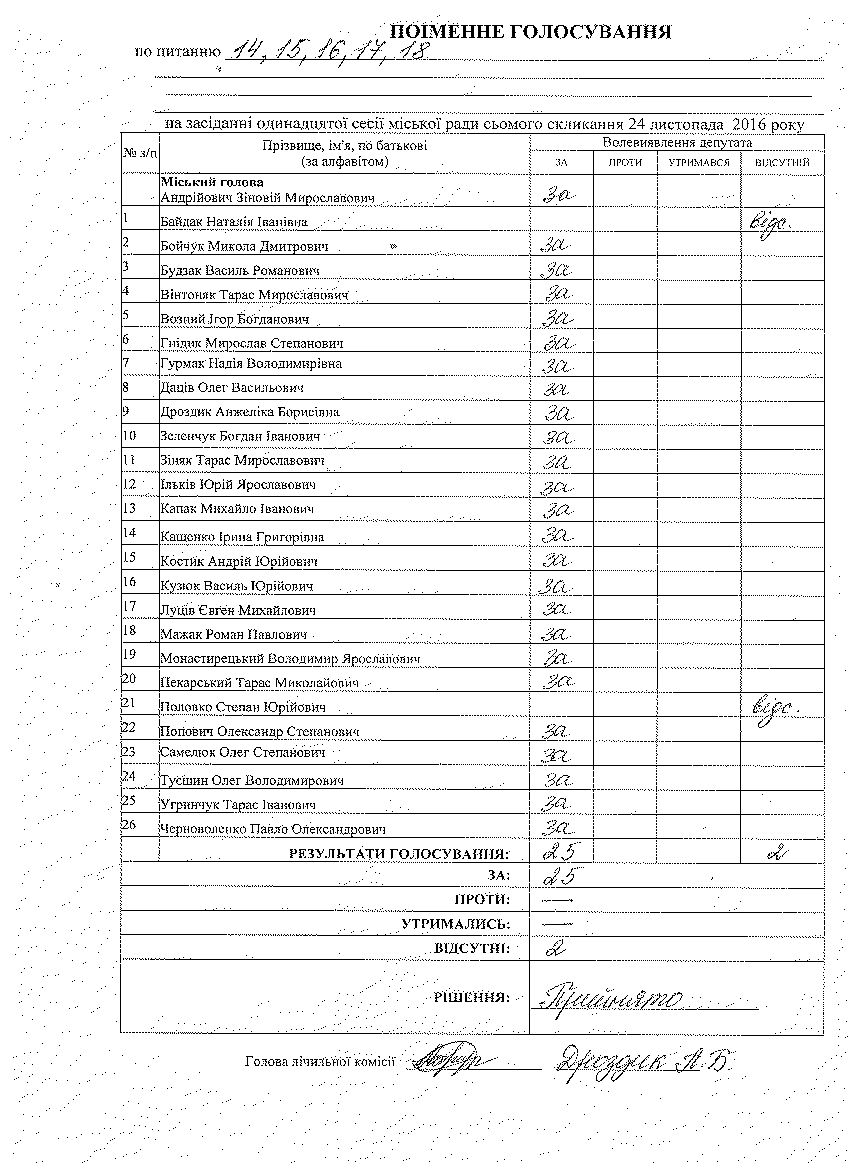 ПОІМЕННЕ ГОЛОСУВАННЯ
по питанню 14, 15, 16, 17, 18
на засіданні одинадцятої сесії міської ради сьомого скликання 24 листопада 2016 року
№ з/п Прізвище, ім'я, по батькові (за алфавітом) Волевиявлення депутата
ЗА ПРОТИ УТРИМАВСЯ ВІДСУТНІЙ
Міський голова
Андрійович Зіновій Мирославович За
1 Байдак Наталія Іванівна відс.
2 Бойчук Микола Дмитрович За
3 Будзак Василь Романович За
4 Вінтоняк Тарас Мирославович За
5 Возний Ігор Богданович За
6 Гнідик Мирослав Степанович За
7 Гурмак Надія Володимирівна За
8 Даців Олег Васильович За
9 Дроздик Анжеліка Борисівна За
10 Зеленчук Богдан Іванович За
11 Зіняк Тарас Мирославович За
12 Ільків Юрій Ярославович За
13 Капак Михайло Іванович За
14 Кащенко Ірина Григорівна За
15 Костик Андрій Юрійович За
16 Кузюк Василь Юрійович За
17 Луців Євген Михайлович За
18 Мажак Роман Павлович За
19 Монастирецький Володимир Ярославович За
20 Пекарський Тарас Миколайович За
21 Половко Степан Юрійович відс.
22 Попович Олександр Степанович За
23 Самелюк Олег Степанович За
24 Туєшин Олег Володимирович За
25 Угринчук Тарас Іванович За
26 Черноволенко Павло Олександрович За
РЕЗУЛЬТАТИ ГОЛОСУВАННЯ: 25 2
ЗА: 25
ПРОТИ: —
УТРИМАЛИСЬ: —
ВІДСУТНІ: 2
РІШЕННЯ: Прийнято
Голова лічильної комісії Дроздик А.Б.